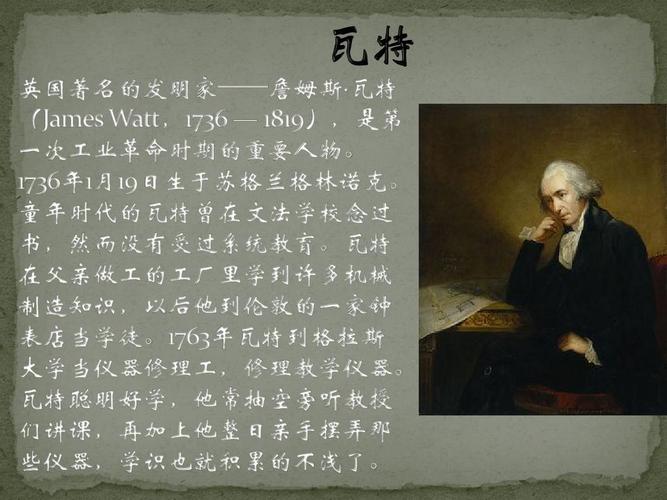 瓦特
英国著名的发明家——詹姆斯·瓦特
（James Watt，1736 — 1819），是第
一次工业革命时期的重要人物。
1736年1月19日生于苏格兰格林诺克。
童年时代的瓦特曾在文法学校念过
书，然而没有受过系统教育。瓦特
在父亲做工的工厂里学到许多机械
制造知识，以后他到伦敦的一家钟
表店当学徒。1763年瓦特到格拉斯
大学当仪器修理工，修理教学仪器。
瓦特聪明好学，他常抽空旁听教授
们讲课，再加上他整日亲手摆弄那
些仪器，学识也就积累的不浅了。